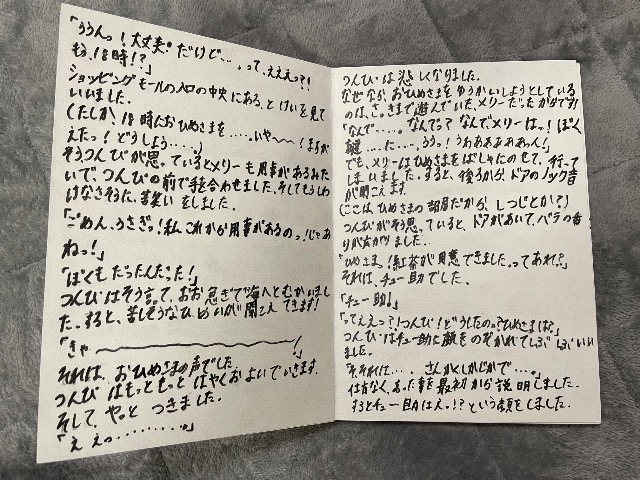 「ううんっ！大丈夫。だけど…、って、えええっ?!
もう、18時!?」
ショッピングモールの入口の中央にある、とけいを見て
いいました。
(たしか、18時んおひめさまを……、いや〜!まちが
えたっ!どうしよう……。)
そうつんぴが思っているとメリーも用事があるみた
いで、つんぴの前で手を合わせました。そしてもうしわ
けなさそうに苦笑いをしました。
「ごめん、うさぎっ!私これから用事があるのっ!じゃあ
ねっ!」
「ぼくもだったんだった!」
つんぴはそう言って、おお急ぎで海へとむかいまし
た。すると、苦しそうなひめいが聞こえてきます!
「きゃ〜〜〜〜〜〜〜〜〜!」
それは、おひめさまの声でした。
つんぴはもっともっとはやくおよいでいきます。
そして、やっとつきました。
「ええっ………。」
つんぴは悲しくなりました。
なぜなら、おひめさまをゆうかいしようとしている
のは、さっきまで遊んでいた、メリーだったからです!
「なんで……。なんでっ?なんで、メリーはっ!ぼく
に……、ううっ!うわああああっん!」
でも、メリーはひめさまをばしゃにのせて、行って
しまいました。すると、後ろから、ドアのノック音
が聞こえます。
(ここは、ひめさまの部屋だから、しつじとか?)
つんぴがそう思っていると、ドアがあいて、バラの香
りが広がりました。
「ひめさま、!紅茶が用意できました。ってあれ?」
それは、チュー助でした。
「チュー助!」
「ってええっ?!つんぴ!どうしたのっ?ひめさまは?」
つんぴはチュー助に顔をのぞかれてしぶしぶいい
ました。
「そ、それは……、さんかくしかじかで……。」
仕方なく、あった事を最初から説明しました。
するとチュー助はえっ!?という顔をしました。